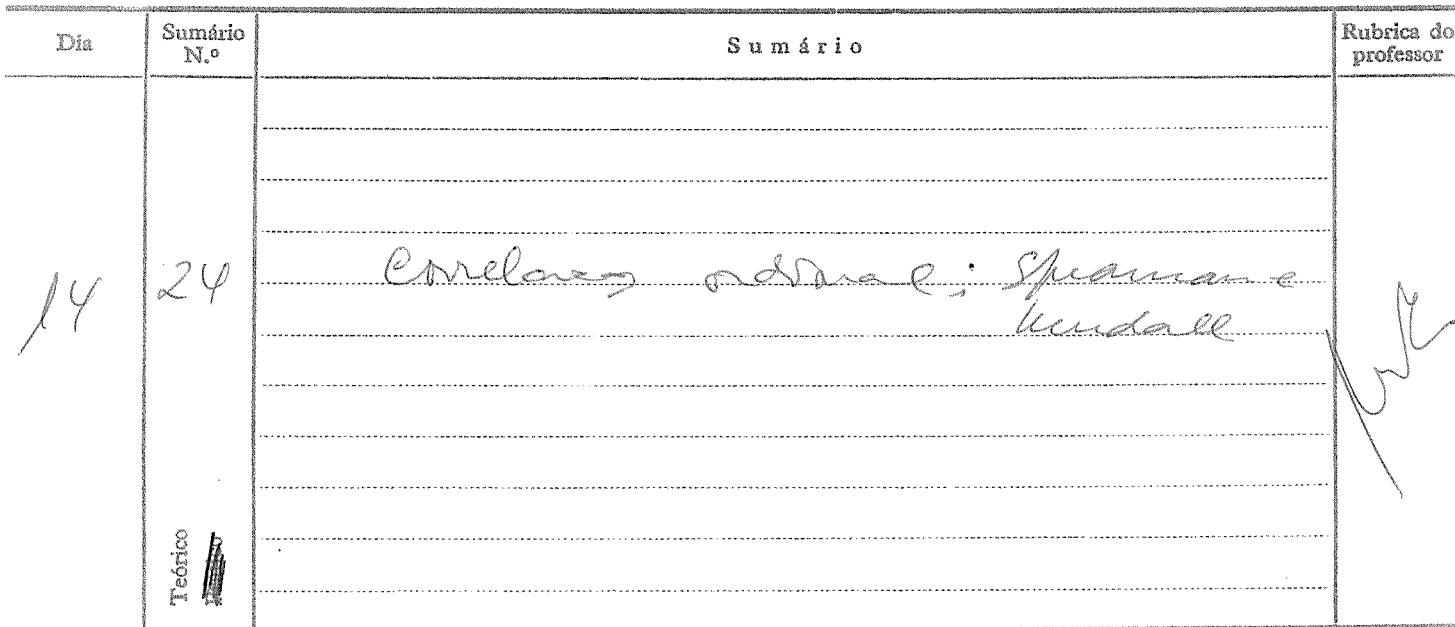 Dia Sumário N.º Sumário Rubrica do professor
14 24 Correlação ordinal; Spearman e
Kendall
Teórico